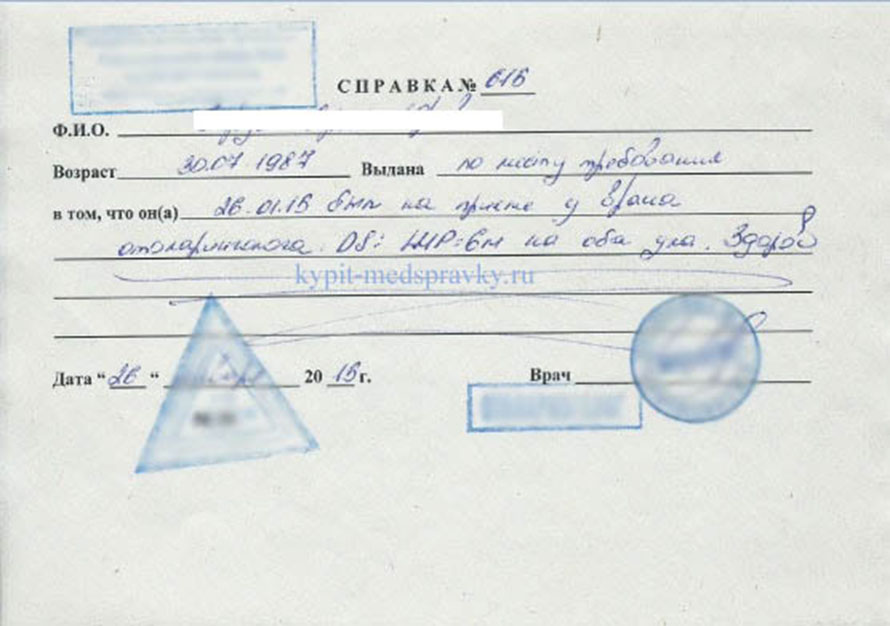 СПРАВКА № 616
Ф.И.О.
Возраст 30.07 1987 Выдана по месту требования
в том, что он(а) 26.01.15 был на приеме у врача
отоларинголога. DS: ШР=6м на оба уха. Здоров
kypit-medspravky.ru
Дата “26“ 20 15 г. Врач